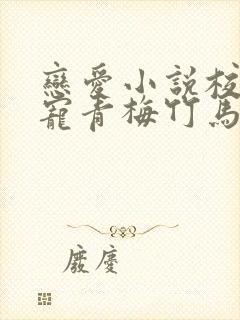 戀愛小說校
寵青梅竹馬
廢慶